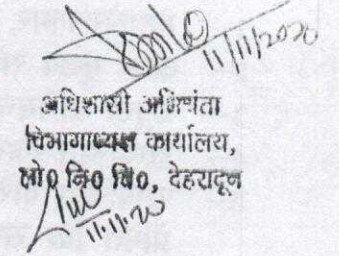 11/11/2020
अधिशासी अभियंता
विभागाध्यक्ष कार्यालय,
लो० नि० वि०, देहरादून
11.11.20